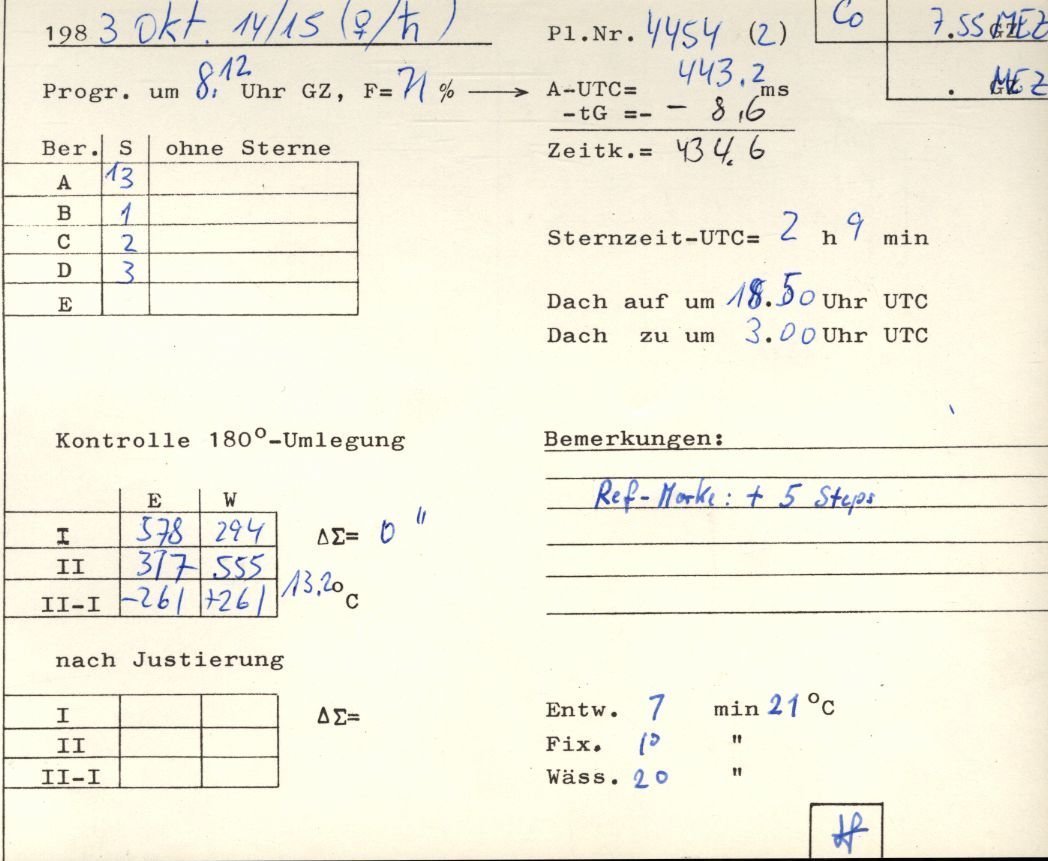 1983 Okt. 14/15 (♀/♄)
Pl.Nr. 4454 (2)
Co 7.55 MEZ
Progr. um 8.12 Uhr GZ, F= 71 % → A-UTC= 443.2 ms
. MEZ
-tG =- - 8,6
Zeitk.= 434.6
Ber. S ohne Sterne
A 13
B 1
C 2
D 3
E
Sternzeit-UTC= 2 h 9 min
Dach auf um 18.50 Uhr UTC
Dach zu um 3.00 Uhr UTC
Kontrolle 180°-Umlegung
Bemerkungen:
Ref-Marke: + 5 Steps
E W
I 578 294 ΔΣ= 0 "
II 317 555
II-I -261 +261 13.2°C
nach Justierung
I ΔΣ=
II
II-I
Entw. 7 min 21 °C
Fix. 10 "
Wäss. 20 "